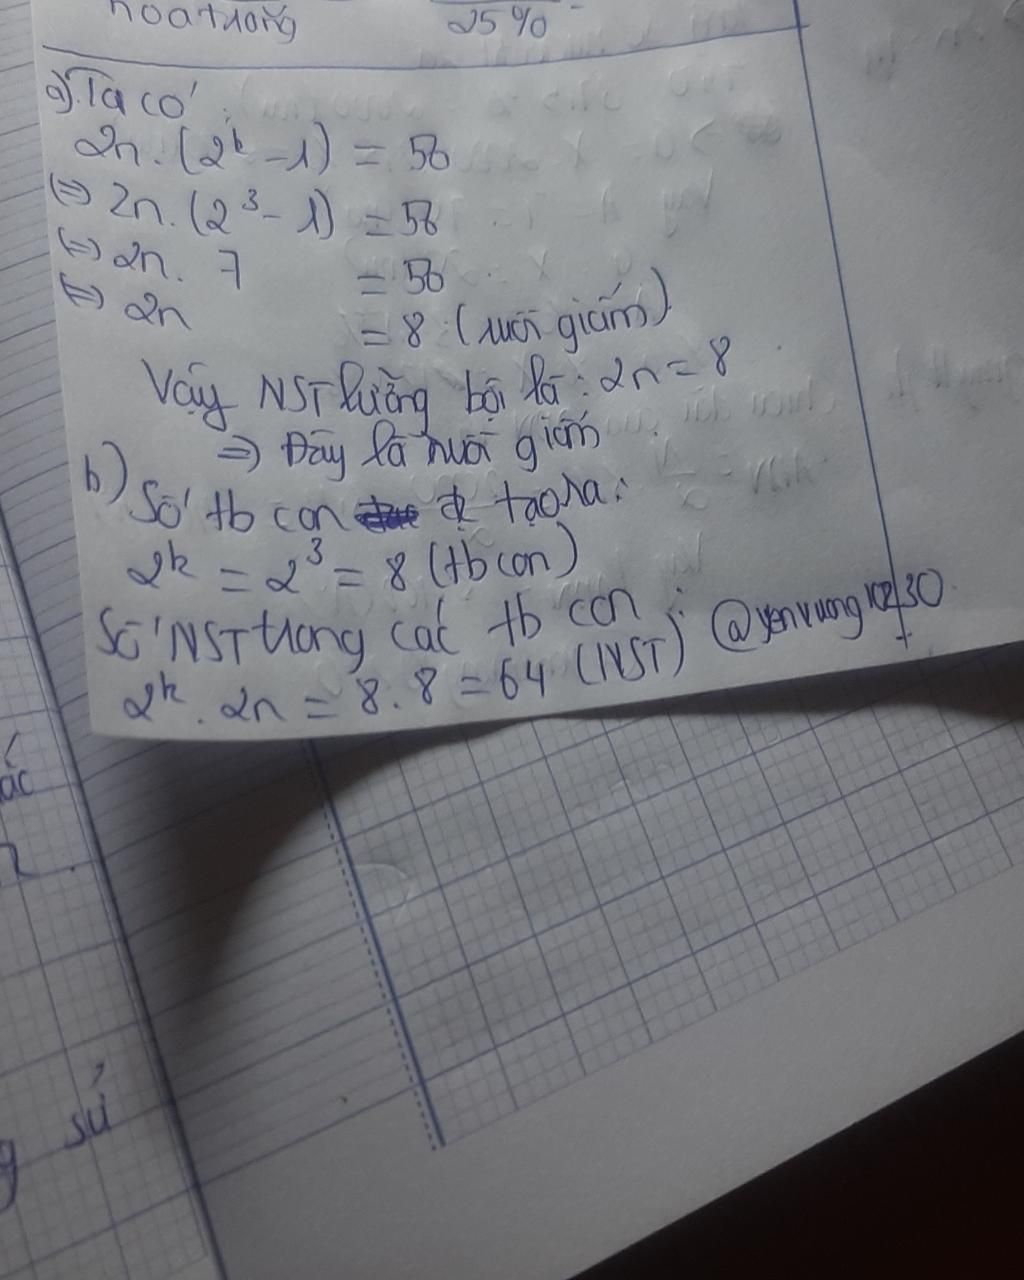 hoa trắng 25%
a) Ta có:
2n. (2^k - 1) = 56
(=) 2n. (2^3 - 1) = 56
(=) 2n. 7 = 56
(=) 2n = 8 (ruồi giấm)
Vậy NST lưỡng bội là: 2n = 8
=) Đây là ruồi giấm
b) Số tb con đc tạo ra:
2^k = 2^3 = 8 (tb con)
Số NST trong các tb con:
2^k. 2n = 8. 8 = 64 (NST) @yenvuong10230
ác
sử